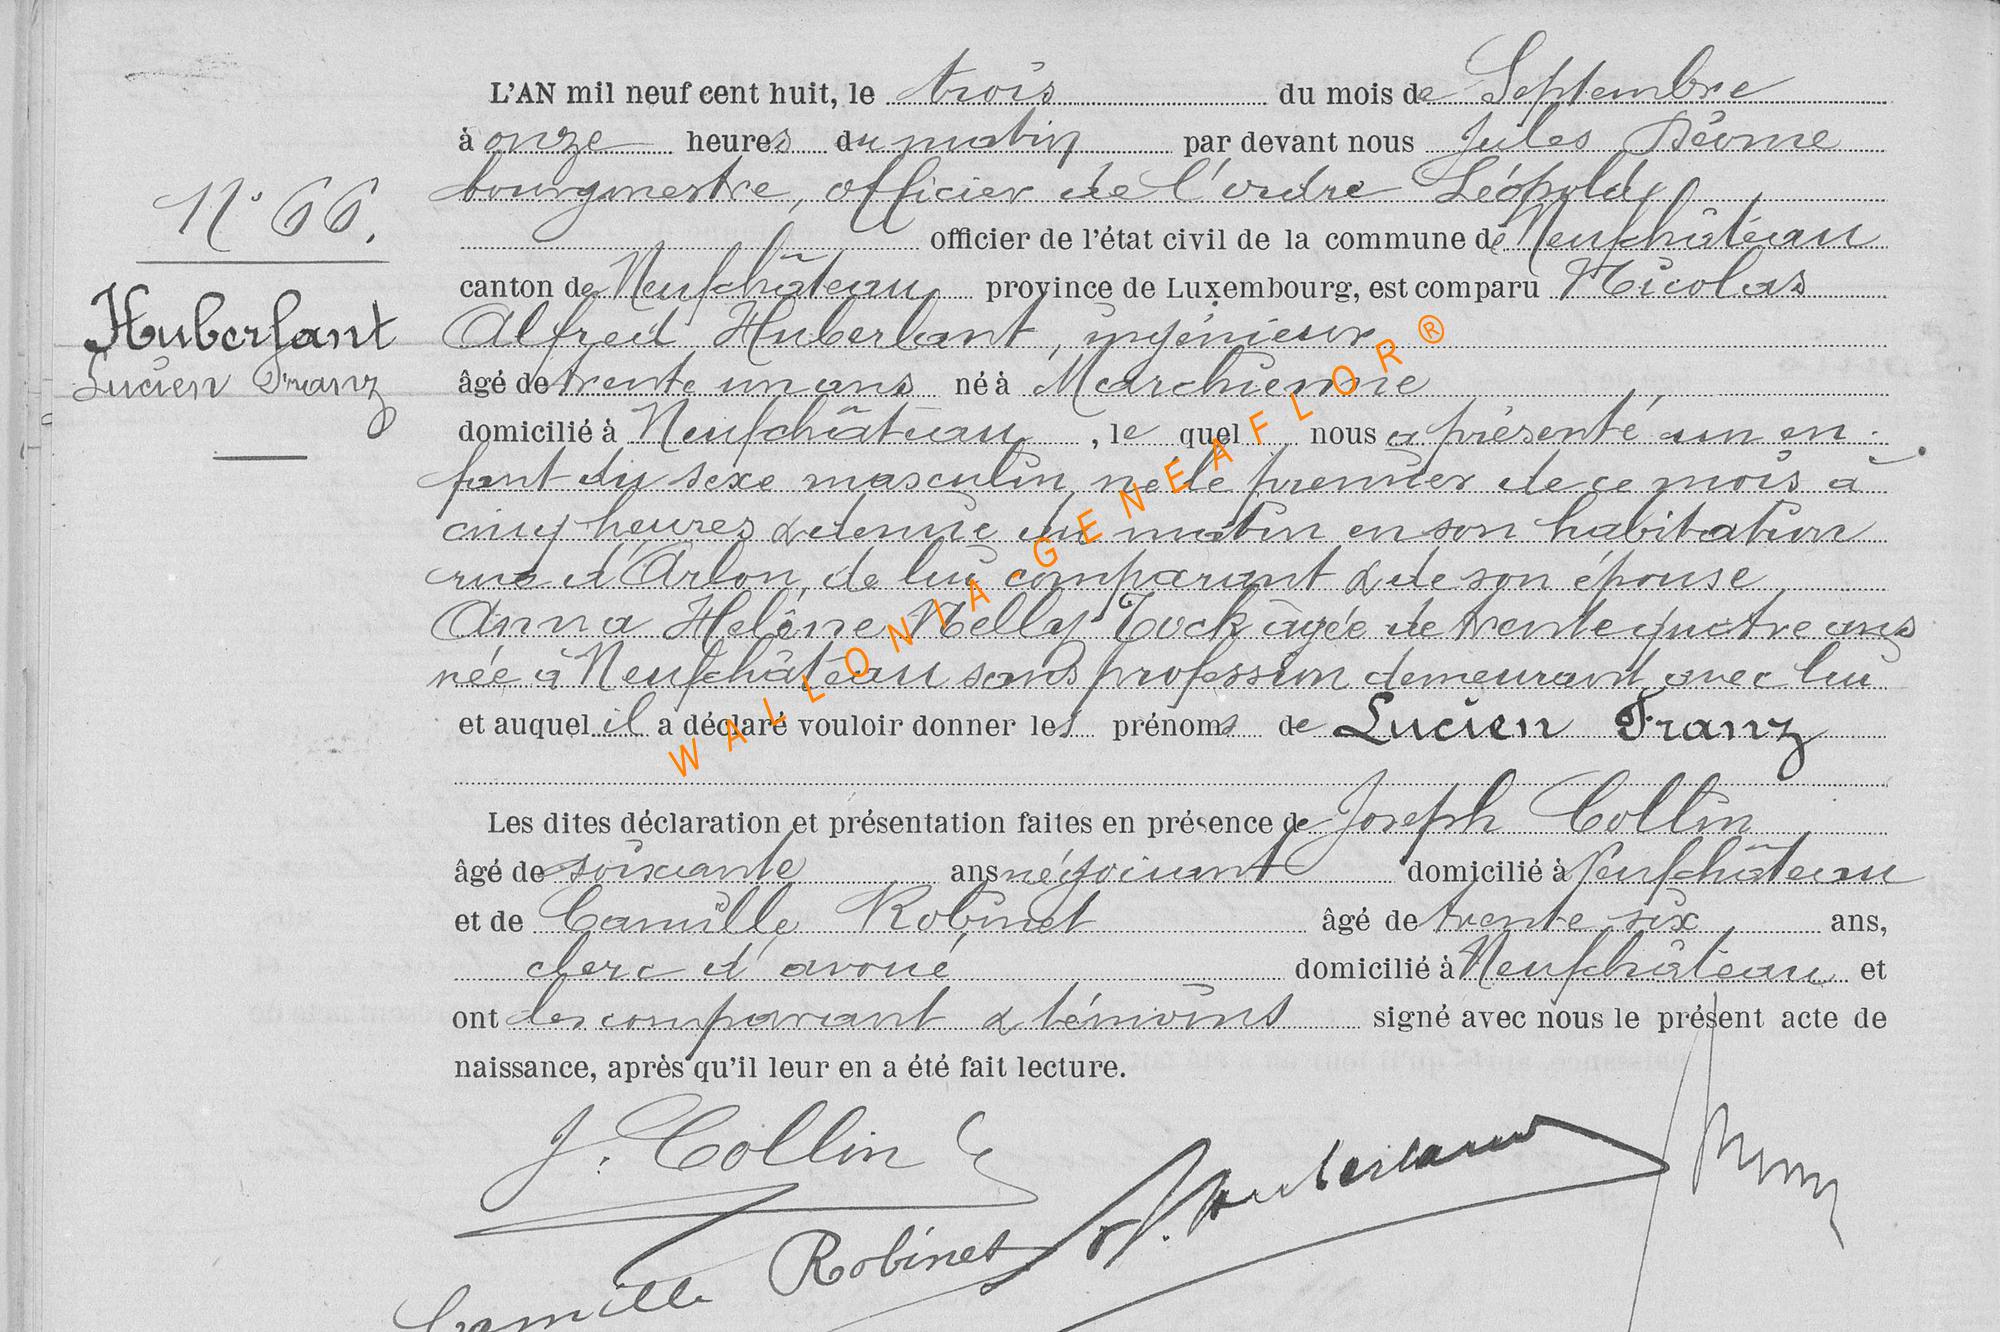 L'AN mil neuf cent huit, le trois du mois de Septembre
à onze heures du matin par devant nous Jules
bourgmestre, officier de l'ordre Léopold
officier de l'état civil de la commune de Neufchâteau
canton de Neufchâteau province de Luxembourg, est comparu Nicolas
Alfred Huberlant, ingénieur
âgé de trente un ans né à Marchienne
domicilié à Neufchâteau, le quel nous a présenté un en-
fant du sexe masculin, né le premier de ce mois à
cinq heures & demie du matin en son habitation
rue d'Arlon, de lui comparant & de son épouse
Anna Helène Nelly Tock âgée de trente quatre ans
née à Neufchâteau sans profession demeurant avec lui
et auquel il a déclaré vouloir donner les prénoms de Lucien Franz
Les dites déclaration et présentation faites en présence de Joseph Collin
âgé de soixante ans négociant domicilié à Neufchâteau
et de Camille Robinet âgé de trente six ans,
clerc d'avoué domicilié à Neufchâteau et
ont les comparant & témoins signé avec nous le présent acte de
naissance, après qu'il leur en a été fait lecture.
N° 66.
Huberlant
Lucien Franz
J. Collin
Camille Robinet
Huberlant
WALLONIA-GENEAFLOR®